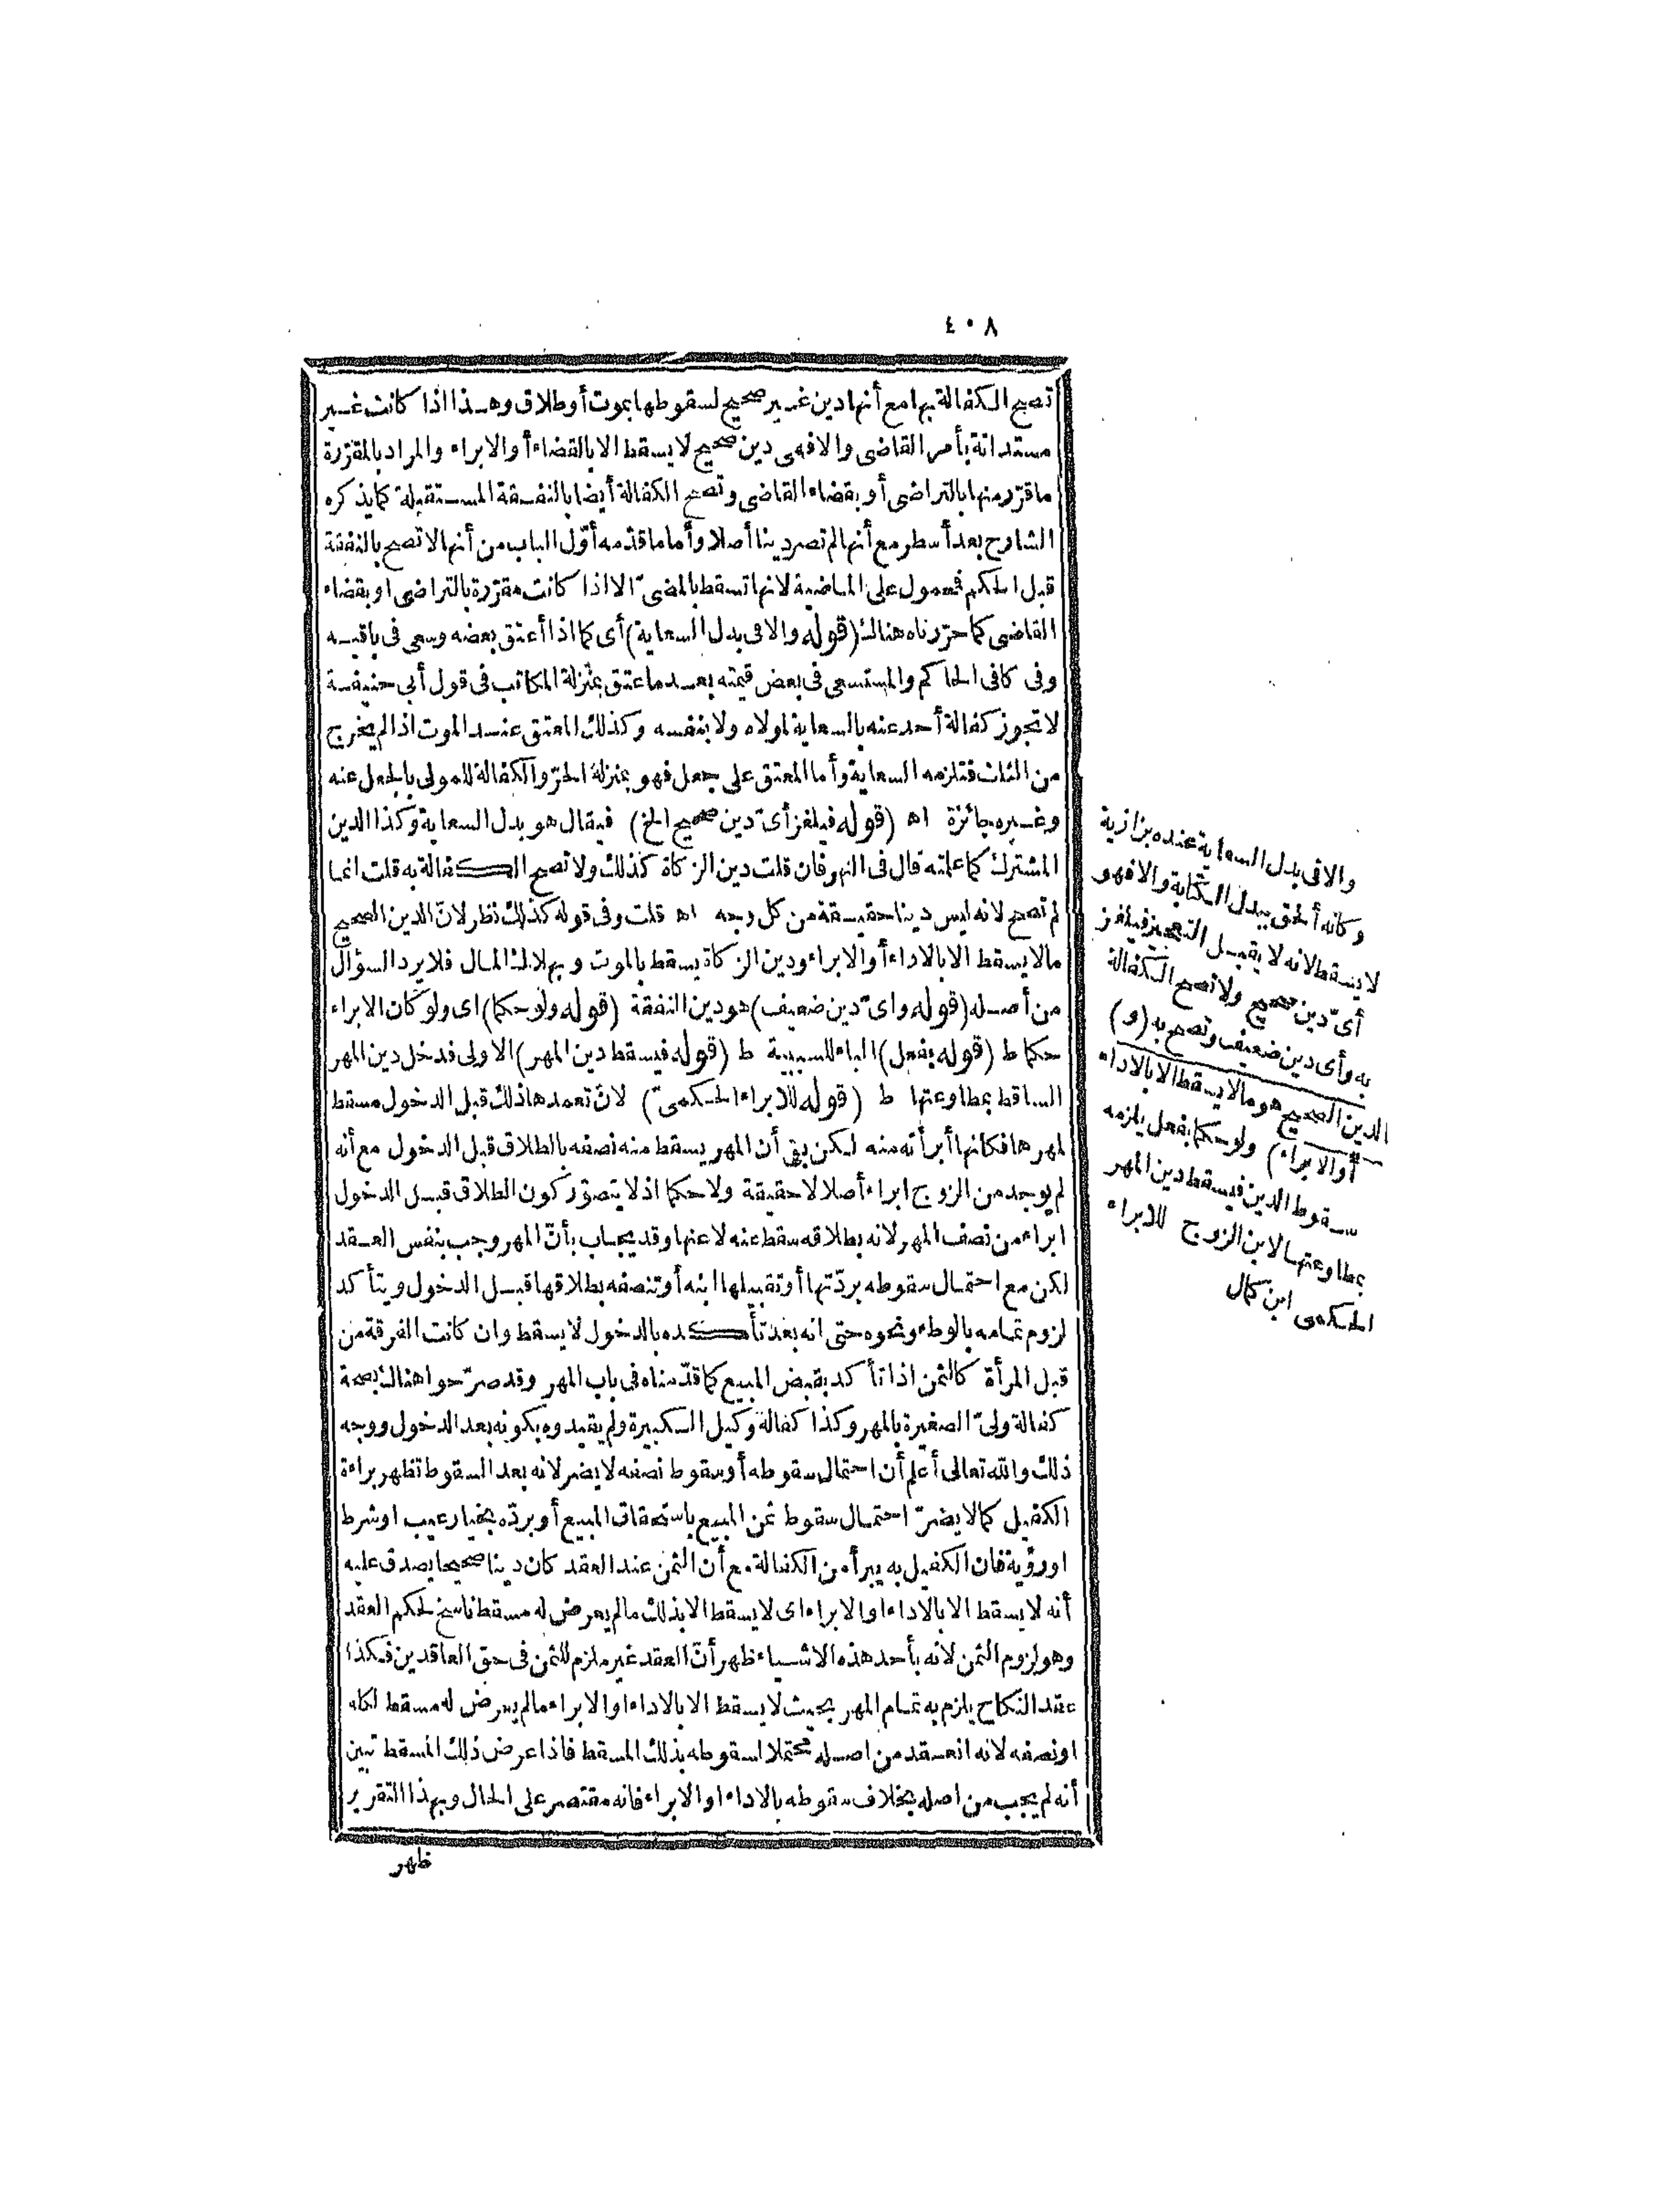 ٤٠٨
تصح الكفالة بها مع أنها دين غير صحيح لسقوطها بموت أو طلاق وهذا اذا كانت غير
مستدانة بأمر القاضى والا فهى دين صحيح لا يسقط الا بالقضاء أو الابراء والمراد بالمقرّرة
ما قرّر منها بالتراضى أو بقضاء القاضى وتصح الكفالة أيضا بالنفقة المستقبلة كما يذكره
الشارح بعد أسطر مع أنها لم تصر دينا أصلا وأما ما قدّمه أوّل الباب من أنها لا تصح بالنفقة
قبل الحكم فمحمول على الماضية لانها تسقط بالمضىّ الا اذا كانت مقرّرة بالتراضى او بقضاء
القاضى كما حرّرناه هناك (قوله والا فى بدل السعاية) أى كما اذا أعتق بعضه وسعى فى باقيه
وفى كافى الحاكم والمستسعى فى بعض قيمته بعد ما عتق بمنزلة المكاتب فى قول أبى حنيفة
لا تجوز كفالة أحد عنه بالسعاية لمولاه ولا بنفسه وكذلك المعتق عند الموت اذا لم يخرج
من الثلث فتلزمه السعاية وأما المعتق على جعل فهو بمنزلة الحرّ والكفالة للمولى بالجعل عنه
وغيره جائزة اه (قوله فيلغز أىّ دين صحيح الخ) فيقال هو بدل السعاية وكذا الدين
المشترك كما علمته قال فى النهر فان قلت دين الزكاة كذلك ولا تصح الكفالة به قلت انما
لم تصح لانه ليس دينا حقيقة من كل وجه اه قلت وفى قوله كذلك نظر لانّ الدين الصحيح
ما لا يسقط الا بالاداء أو الابراء ودين الزكاة يسقط بالموت وبهلاك المال فلا يرد السؤال
من أصله (قوله واىّ دين ضعيف) هو دين النفقة (قوله ولو حكما) اى ولو كان الابراء
حكما ط (قوله بفعل) الباء للسببية ط (قوله فيسقط دين المهر) الاولى فدخل دين المهر
الساقط بمطاوعتها ط (قوله للابراء الحكمىّ) لانّ تعمدها ذلك قبل الدخول مسقط
لمهرها فكانها أبرأته منه لكن بقى أن المهر يسقط منه نصفه بالطلاق قبل الدخول مع أنه
لم يوجد من الزوج ابراء أصلا لا حقيقة ولا حكما اذ لا يتصوّر كون الطلاق قبل الدخول
ابراء من نصف المهر لانه بطلاقه سقط عنه لا عنها وقد يجاب بأنّ المهر وجب بنفس العقد
لكن مع احتمال سقوطه بردّتها أو تقبيلها ابنه أو تنصفه بطلاقها قبل الدخول ويتأكد
لزوم تمامه بالوطء ونحوه حتى انه بعد تأكده بالدخول لا يسقط وان كانت الفرقة من
قبل المرأة كالثمن اذا تأكد بقبض المبيع كما قدّمناه فى باب المهر وقد صرّحوا هناك بصحة
كفالة ولىّ الصغيرة بالمهر وكذا كفالة وكيل الكبيرة ولم يقيدوه بكونه بعد الدخول ووجه
ذلك والله تعالى أعلم أن احتمال سقوطه أو سقوط نصفه لا يضر لانه بعد السقوط تظهر براءة
الكفيل كما لا يضرّ احتمال سقوط ثمن المبيع باستحقاق المبيع أو بردّه بخيار عيب او شرط
او رؤية فان الكفيل به يبرأ من الكفالة مع أن الثمن عند العقد كان دينا صحيحا يصدق عليه
أنه لا يسقط الا بالاداء او الابراء اى لا يسقط الا بذلك ما لم يعرض له مسقط ناسخ لحكم العقد
وهو لزوم الثمن لانه بأحد هذه الاشياء ظهر أنّ العقد غير ملزم للثمن فى حق العاقدين فكذا
عقد النكاح يلزم به تمام المهر بحيث لا يسقط الا بالاداء او الابراء ما لم يعرض له مسقط لكله
او نصفه لانه انعقد من اصله محتملا لسقوطه بذلك المسقط فاذا عرض ذلك المسقط تبين
أنه لم يجب من اصله بخلاف سقوطه بالاداء او الابراء فانه مقتصر على الحال وبهذا التقرير
ظهر
والا فى بدل السعاية عنده بزازية
وكانه ألحق ببدل الكتابة والا فهو
لا يسقط لانه لا يقبل التعجيز فيلغز
أىّ دين صحيح ولا تصح الكفالة
به وأى دين ضعيف وتصح به (و)
الدين الصحيح هو ما لا يسقط الا بالاداء
أو الابراء) ولو حكما بفعل يلزمه
سقوط الدين فيسقط دين المهر
بمطاوعتها لابن الزوج للابراء
الحكمى ابن كمال